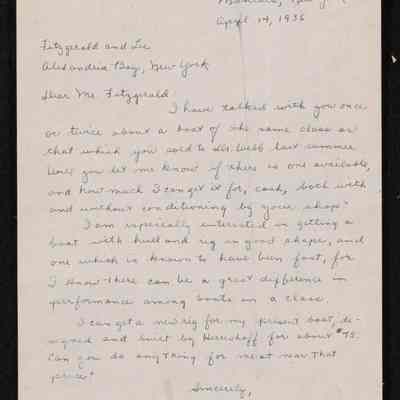 April 14, 1936
Fitzgerald and Lee
Alexandria Bay, New York
Dear Mr. Fitzgerald
I have talked with you once
or twice about a boat of the same class as
that which you sold to Webb last summer
you let me know if there is one available,
and how much I can get it for, cash, both with
and without conditioning by your shop?
I am especially interested in getting a
boat with hull and rig in good shape, and
one which is known to have been fast, for
I know there can be a great difference in
performance among boats in a class.
I can get a new rig for my present boat, de-
signed and built by Herreshoff for about $75.
Can you do anything for me at near that
price?
Sincerely,